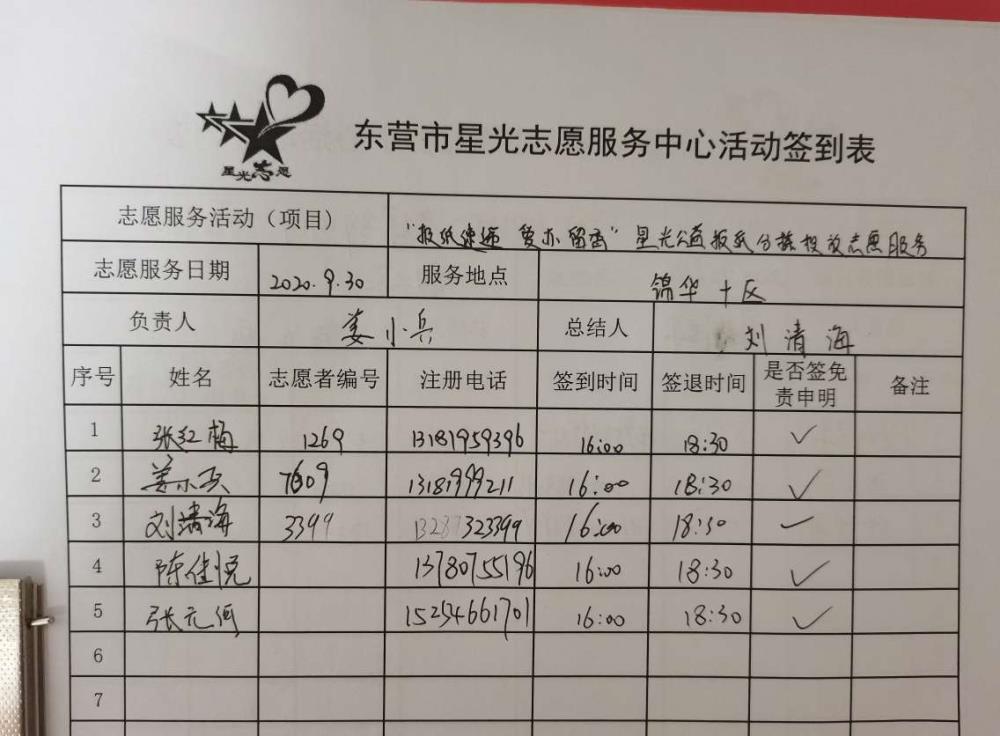 星光志愿
东营市星光志愿服务中心活动签到表
志愿服务活动（项目） “报纸速递 爱亦留香”星光公益报纸分拣投放志愿服务
志愿服务日期 2020.9.30 服务地点 锦华十区
负责人 姜小兵 总结人 刘清海
序号 姓名 志愿者编号 注册电话 签到时间 签退时间 是否签免责申明 备注
1 张红梅 1269 13181959396 16:00 18:30 ✓
2 姜小兵 7609 13181999211 16:00 18:30 ✓
3 刘清海 3399 13287323399 16:00 18:30 ✓
4 陈佳悦 13780755196 16:00 18:30 ✓
5 张元 15254661701 16:00 18:30 ✓
6
7